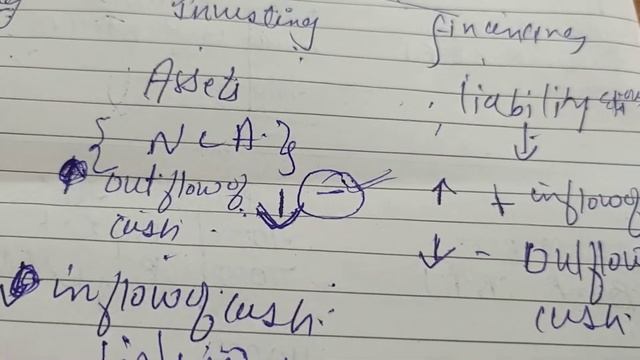 Investing
Assets
{ N C A. }
outflow of ↓ -
cash.
inflow of cash.
financing
liability
↓
↑ + inflow of
↓ - outflow
cash